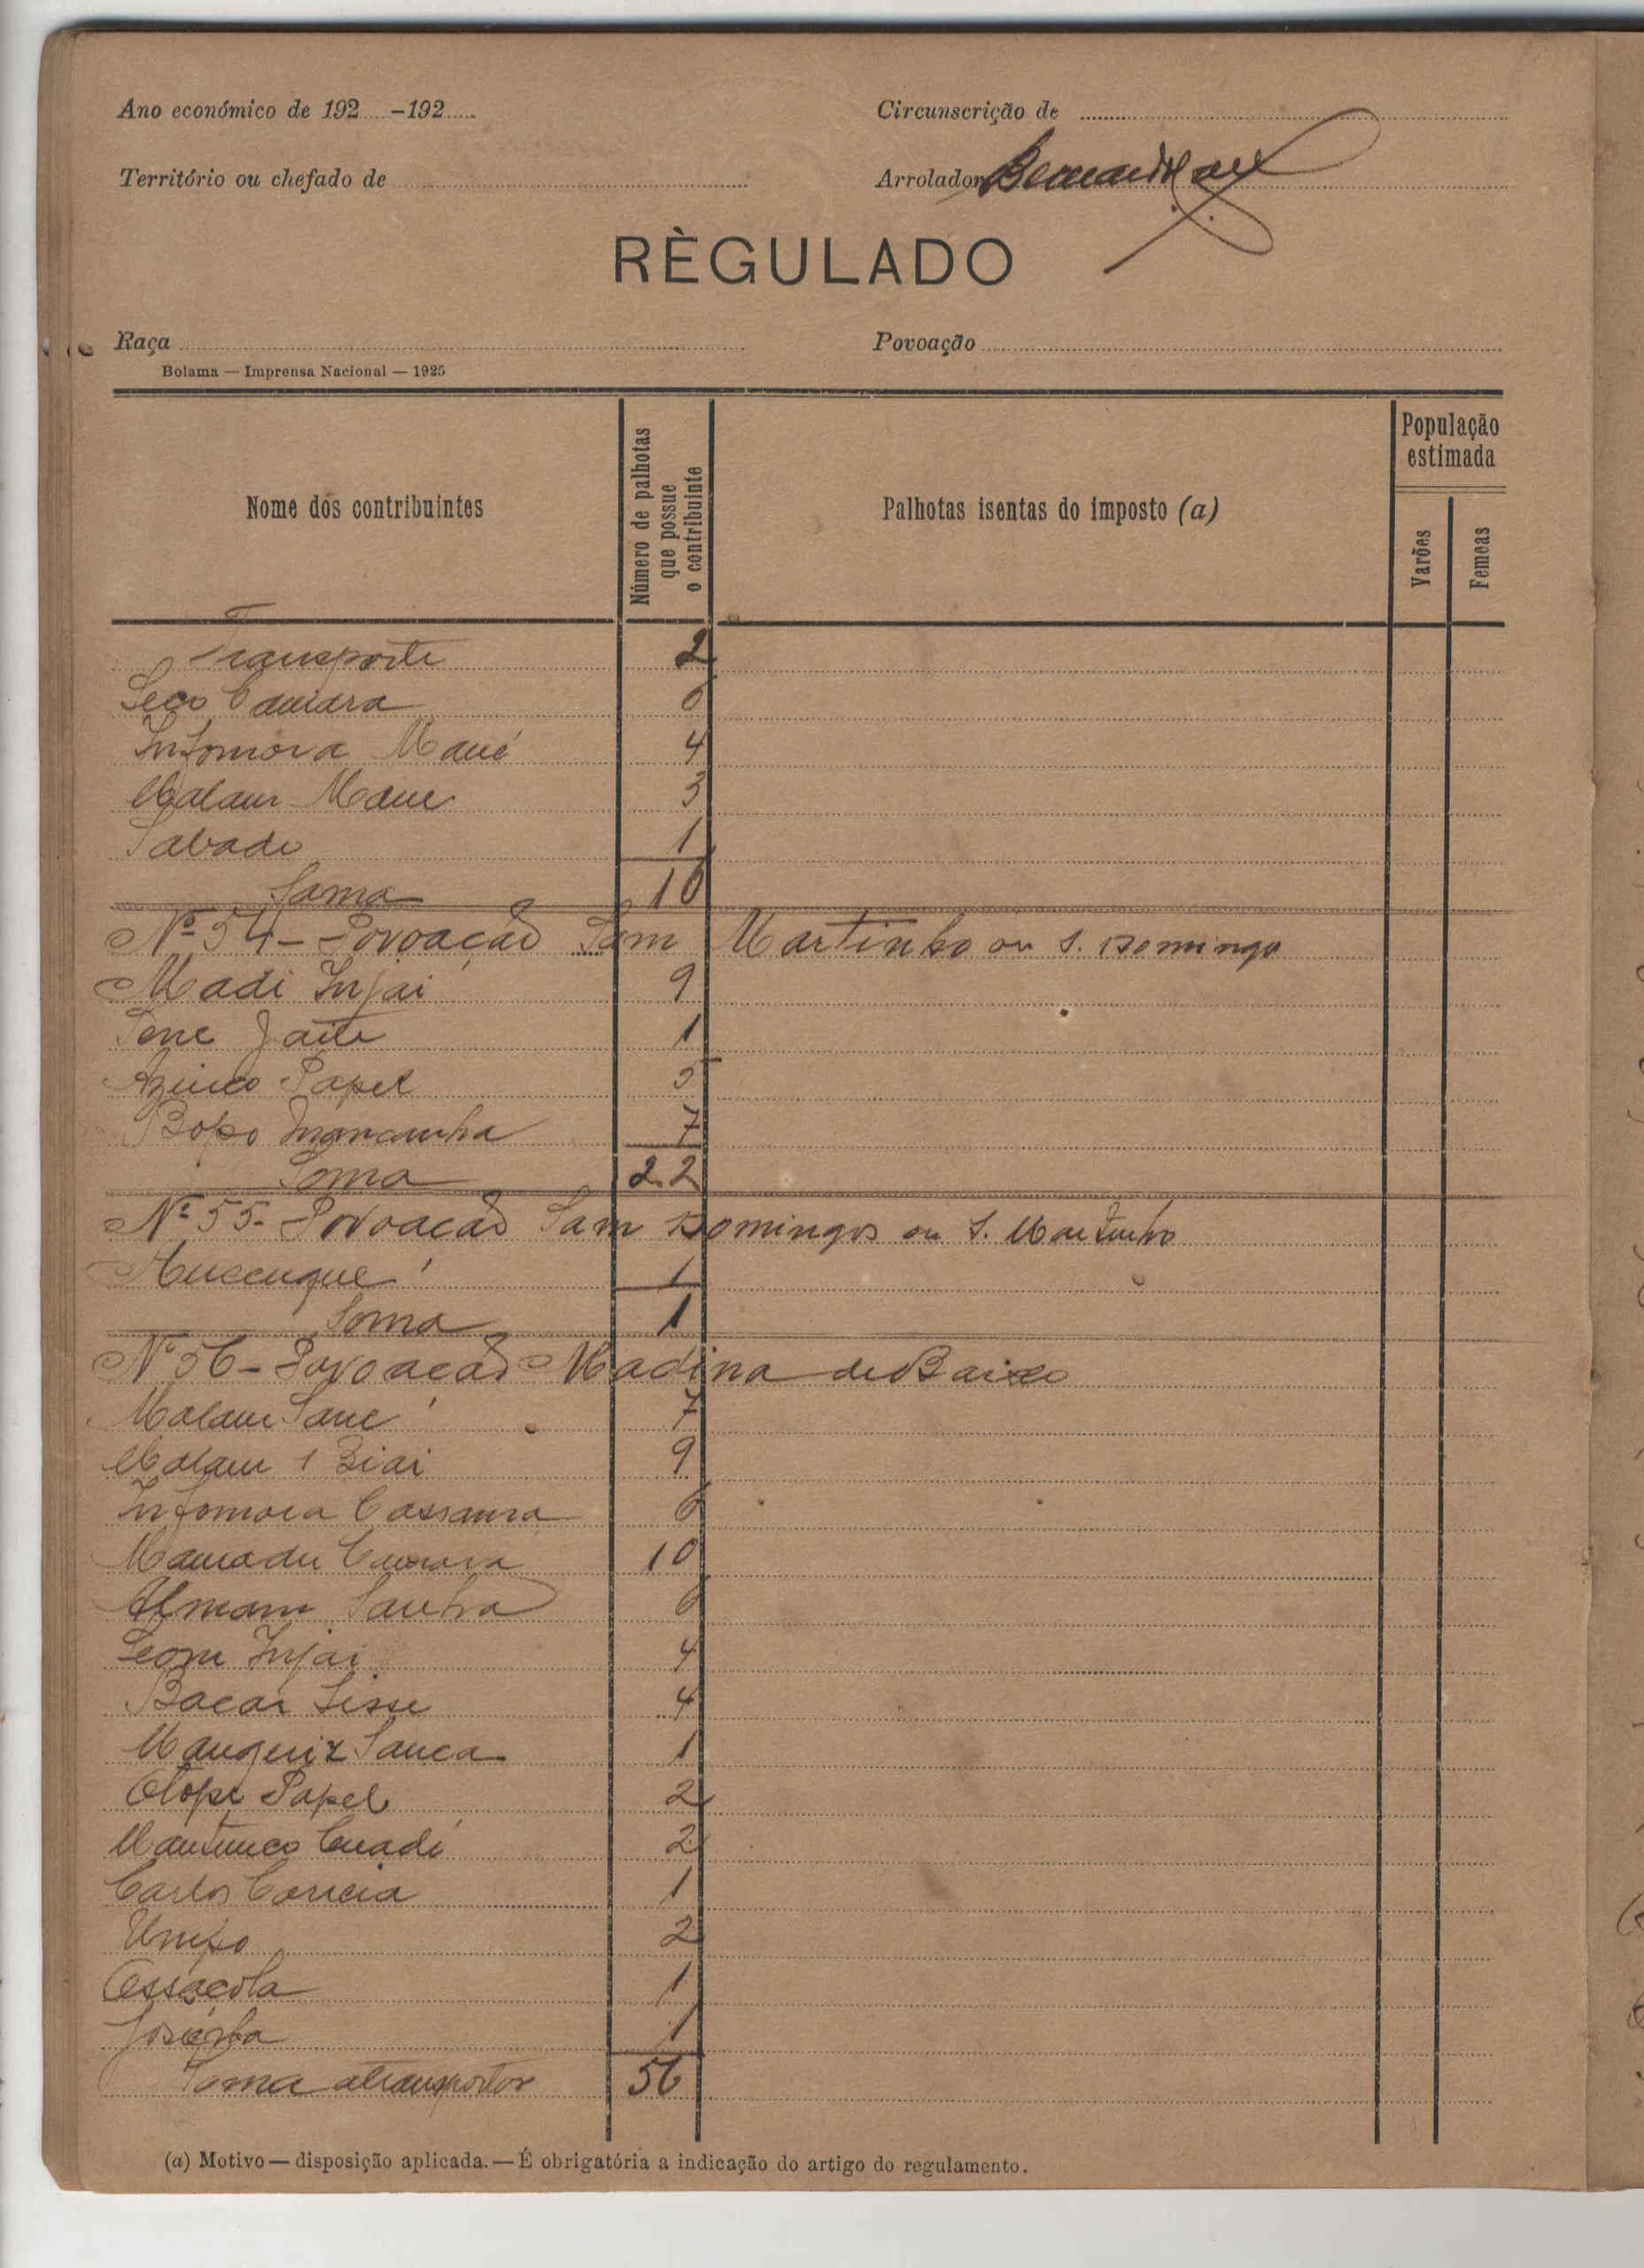 Ano económico de 192.....-192.....
Circunscrição de
Território ou chefado de
Arrolador
RÈGULADO
Raça
Povoação
Bolama — Imprensa Nacional — 1925
Nome dos contribuintes
Número de palhotas que possue o contribuinte
Palhotas isentas do imposto (a)
População estimada
Varões
Femeas
Transporte 2
Seco Camara 6
Infomora Mané 4
Malam Mane 3
Sabado 1
Soma 16
Nº 54 - Povoação Sam Martinho ou S. Domingo
Madi Injai 9
Jaite 1
Papel 5
Bopo Mancanha 7
Soma 22
Nº 55 - Povoacão Sam Domingos ou S. Martinho
1
Soma 1
Nº 56 - Povoacão Madina de Baixo
Malam Sané 7
Malam 1 Biai 9
Infomora Cassama 6
Mamadu Camara 10
Almam Sanha 6
Injai 4
Bacar Sisse 4
Sanca 1
Papel 2
2
Carlos Correia 1
2
1
1
Soma a transportar 56
(a) Motivo — disposição aplicada. — É obrigatória a indicação do artigo do regulamento.